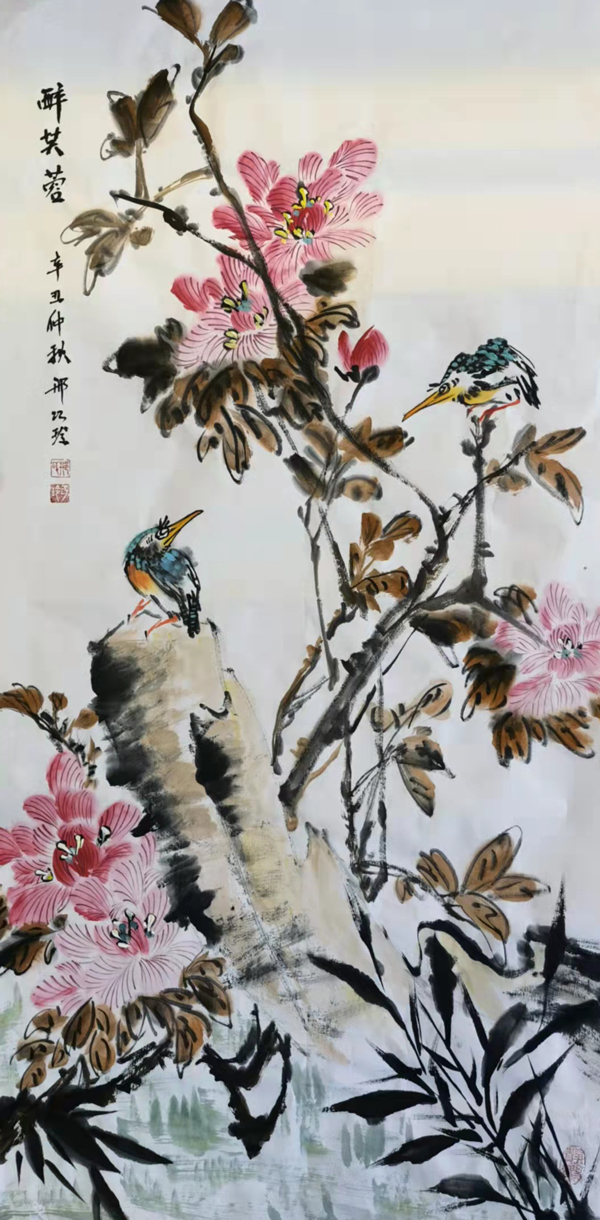 醉芙蓉
辛丑仲秋邢以珍